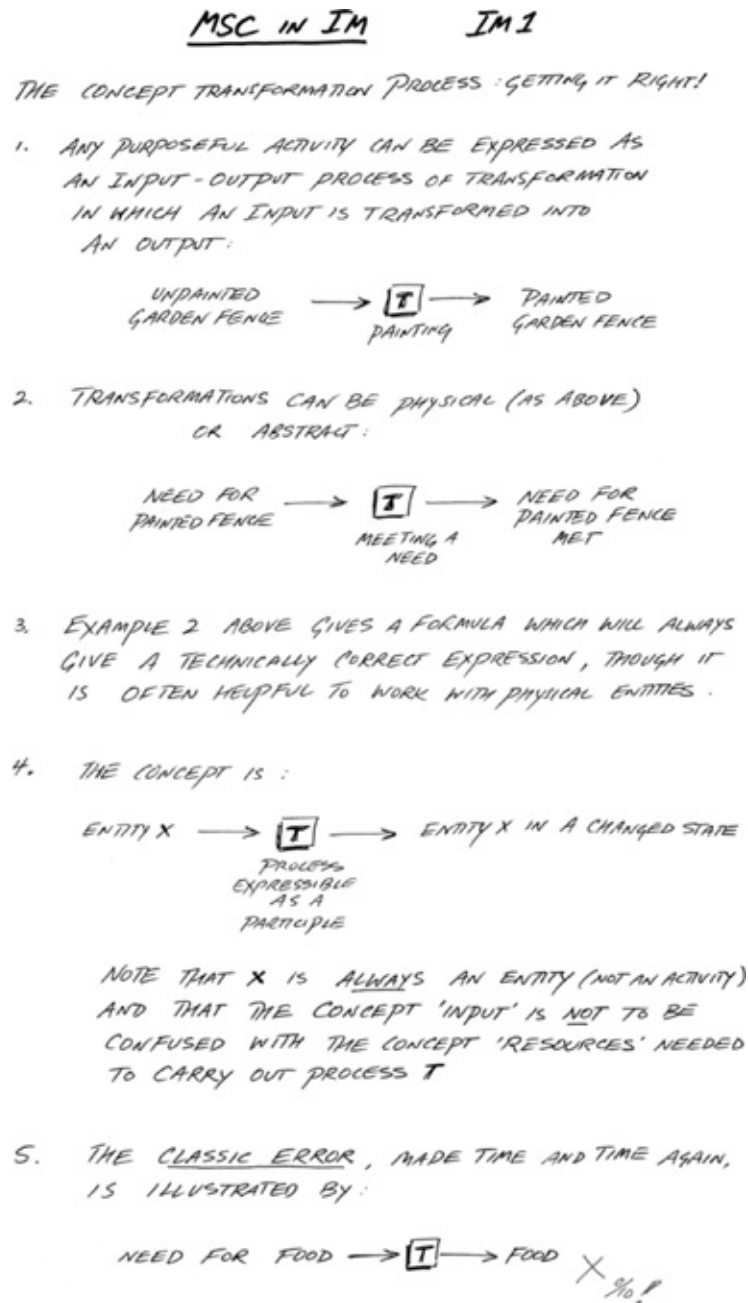 MSC IN IM IM1
THE CONCEPT TRANSFORMATION PROCESS: GETTING IT RIGHT!
1. ANY PURPOSEFUL ACTIVITY CAN BE EXPRESSED AS
AN INPUT-OUTPUT PROCESS OF TRANSFORMATION
IN WHICH AN INPUT IS TRANSFORMED INTO
AN OUTPUT:
UNPAINTED → T → PAINTED
GARDEN FENCE PAINTING GARDEN FENCE
2. TRANSFORMATIONS CAN BE PHYSICAL (AS ABOVE)
OR ABSTRACT:
NEED FOR → T → NEED FOR
PAINTED FENCE PAINTED FENCE
MEETING A MET
NEED
3. EXAMPLE 2 ABOVE GIVES A FORMULA WHICH WILL ALWAYS
GIVE A TECHNICALLY CORRECT EXPRESSION, THOUGH IT
IS OFTEN HELPFUL TO WORK WITH PHYSICAL ENTITIES.
4. THE CONCEPT IS:
ENTITY X → T → ENTITY X IN A CHANGED STATE
PROCESS
EXPRESSIBLE
AS A
PARTICIPLE
NOTE THAT X IS ALWAYS AN ENTITY (NOT AN ACTIVITY)
AND THAT THE CONCEPT 'INPUT' IS NOT TO BE
CONFUSED WITH THE CONCEPT 'RESOURCES' NEEDED
TO CARRY OUT PROCESS T
5. THE CLASSIC ERROR, MADE TIME AND TIME AGAIN,
IS ILLUSTRATED BY:
NEED FOR FOOD → T → FOOD X
0/10!